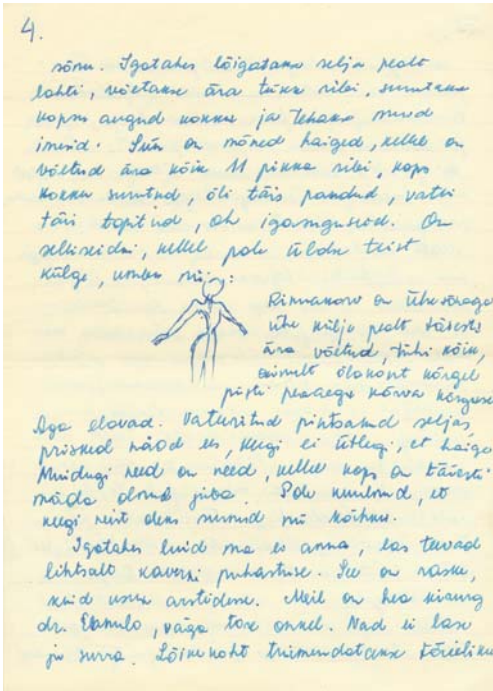 4.
sõnu. Igatahes lõigatakse selja pealt
lahti, võetakse ära tükk ribi, surutakse
kopsu augud kokku ja tehakse muud
imesid. Siin on mõned haiged, kellel on
võetud ära kõik 11 pikka ribi, kops
kokku surutud, õli täis pandud, vatti
täis topitud, oh igasuguseid. On
selliseidki, kellel pole üldse teist
külge, umbes nii:
Rinnakorv on ühesõnaga
ühe külje pealt täiesti
ära võetud, tühi kõik,
ainult õlakont kõrgel
püsti peaaegu kõrva kõrgusel
Aga elavad. Vateeritud pintsakud seljas,
prisked näod ees, keegi ei ütlegi, et haige
Muidugi need on need, kellel kops on täiesti
mäda olnud juba. Pole kuulnud, et
keegi neist oleks surnud nii kõhku.
Igatahes luid ma ei anna, las teevad
lihtsalt kaverni puhastuse. See on raske,
kuid usun arstidesse. Meil on hea kirurg
dr. , väga tore onkel. Nad ei lase
ju surra. Lõikekoht tuimendatakse täielikult